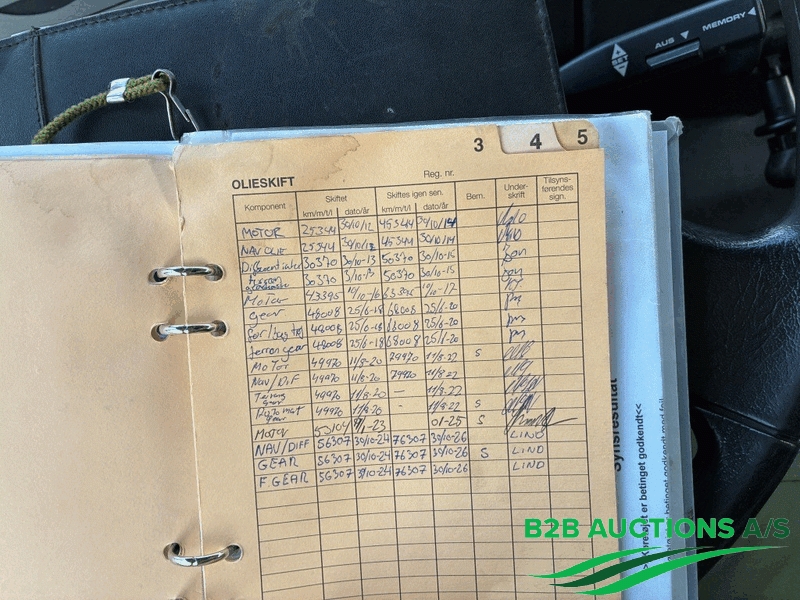 AUS MEMORY
SET
3 4 5
OLIESKIFT Reg. nr.
Komponent Skiftet Skiftes igen sen. Bem. Under- skrift Tilsyns- førendes sign.
km/m/t/l dato/år km/m/t/l dato/år
MOTOR 25344 30/10/12 45344 30/10/14
NAV OLIE 25344 30/10/12 45344 30/10/14
Differentialer 30370 30/10-13 50370 30/10-15
30370 3/10-13 50370 30/10-15
Motor 43395 10/10-16 63395 10/10-17
Gear 48008 25/6-18 68008 25/6-20
48008 25/6-18 68008 25/6-20
Terran gear 48008 25/6-18 68008 25/6-20
MOTOR 49970 11/8-20 79970 11/8-22 S
Nav/DiF 49970 11/8-20 79970 11/8-22
gear 49970 11/8-20 — 11/8-22
gear 49970 11/8-20 — 11/8-22 S
MOTOR 53104 1-23 01-25 S
NAV/DIFF 56307 30/10-24 76307 30/10-26 LIND
GEAR 56307 30/10-24 76307 30/10-26 S LIND
F. GEAR 56307 30/10-24 76307 30/10-26 LIND
Synsresultat
>>Køretøjet er betinget godkendt<<
betinget godkendt med fejl
B2B AUCTIONS A/S